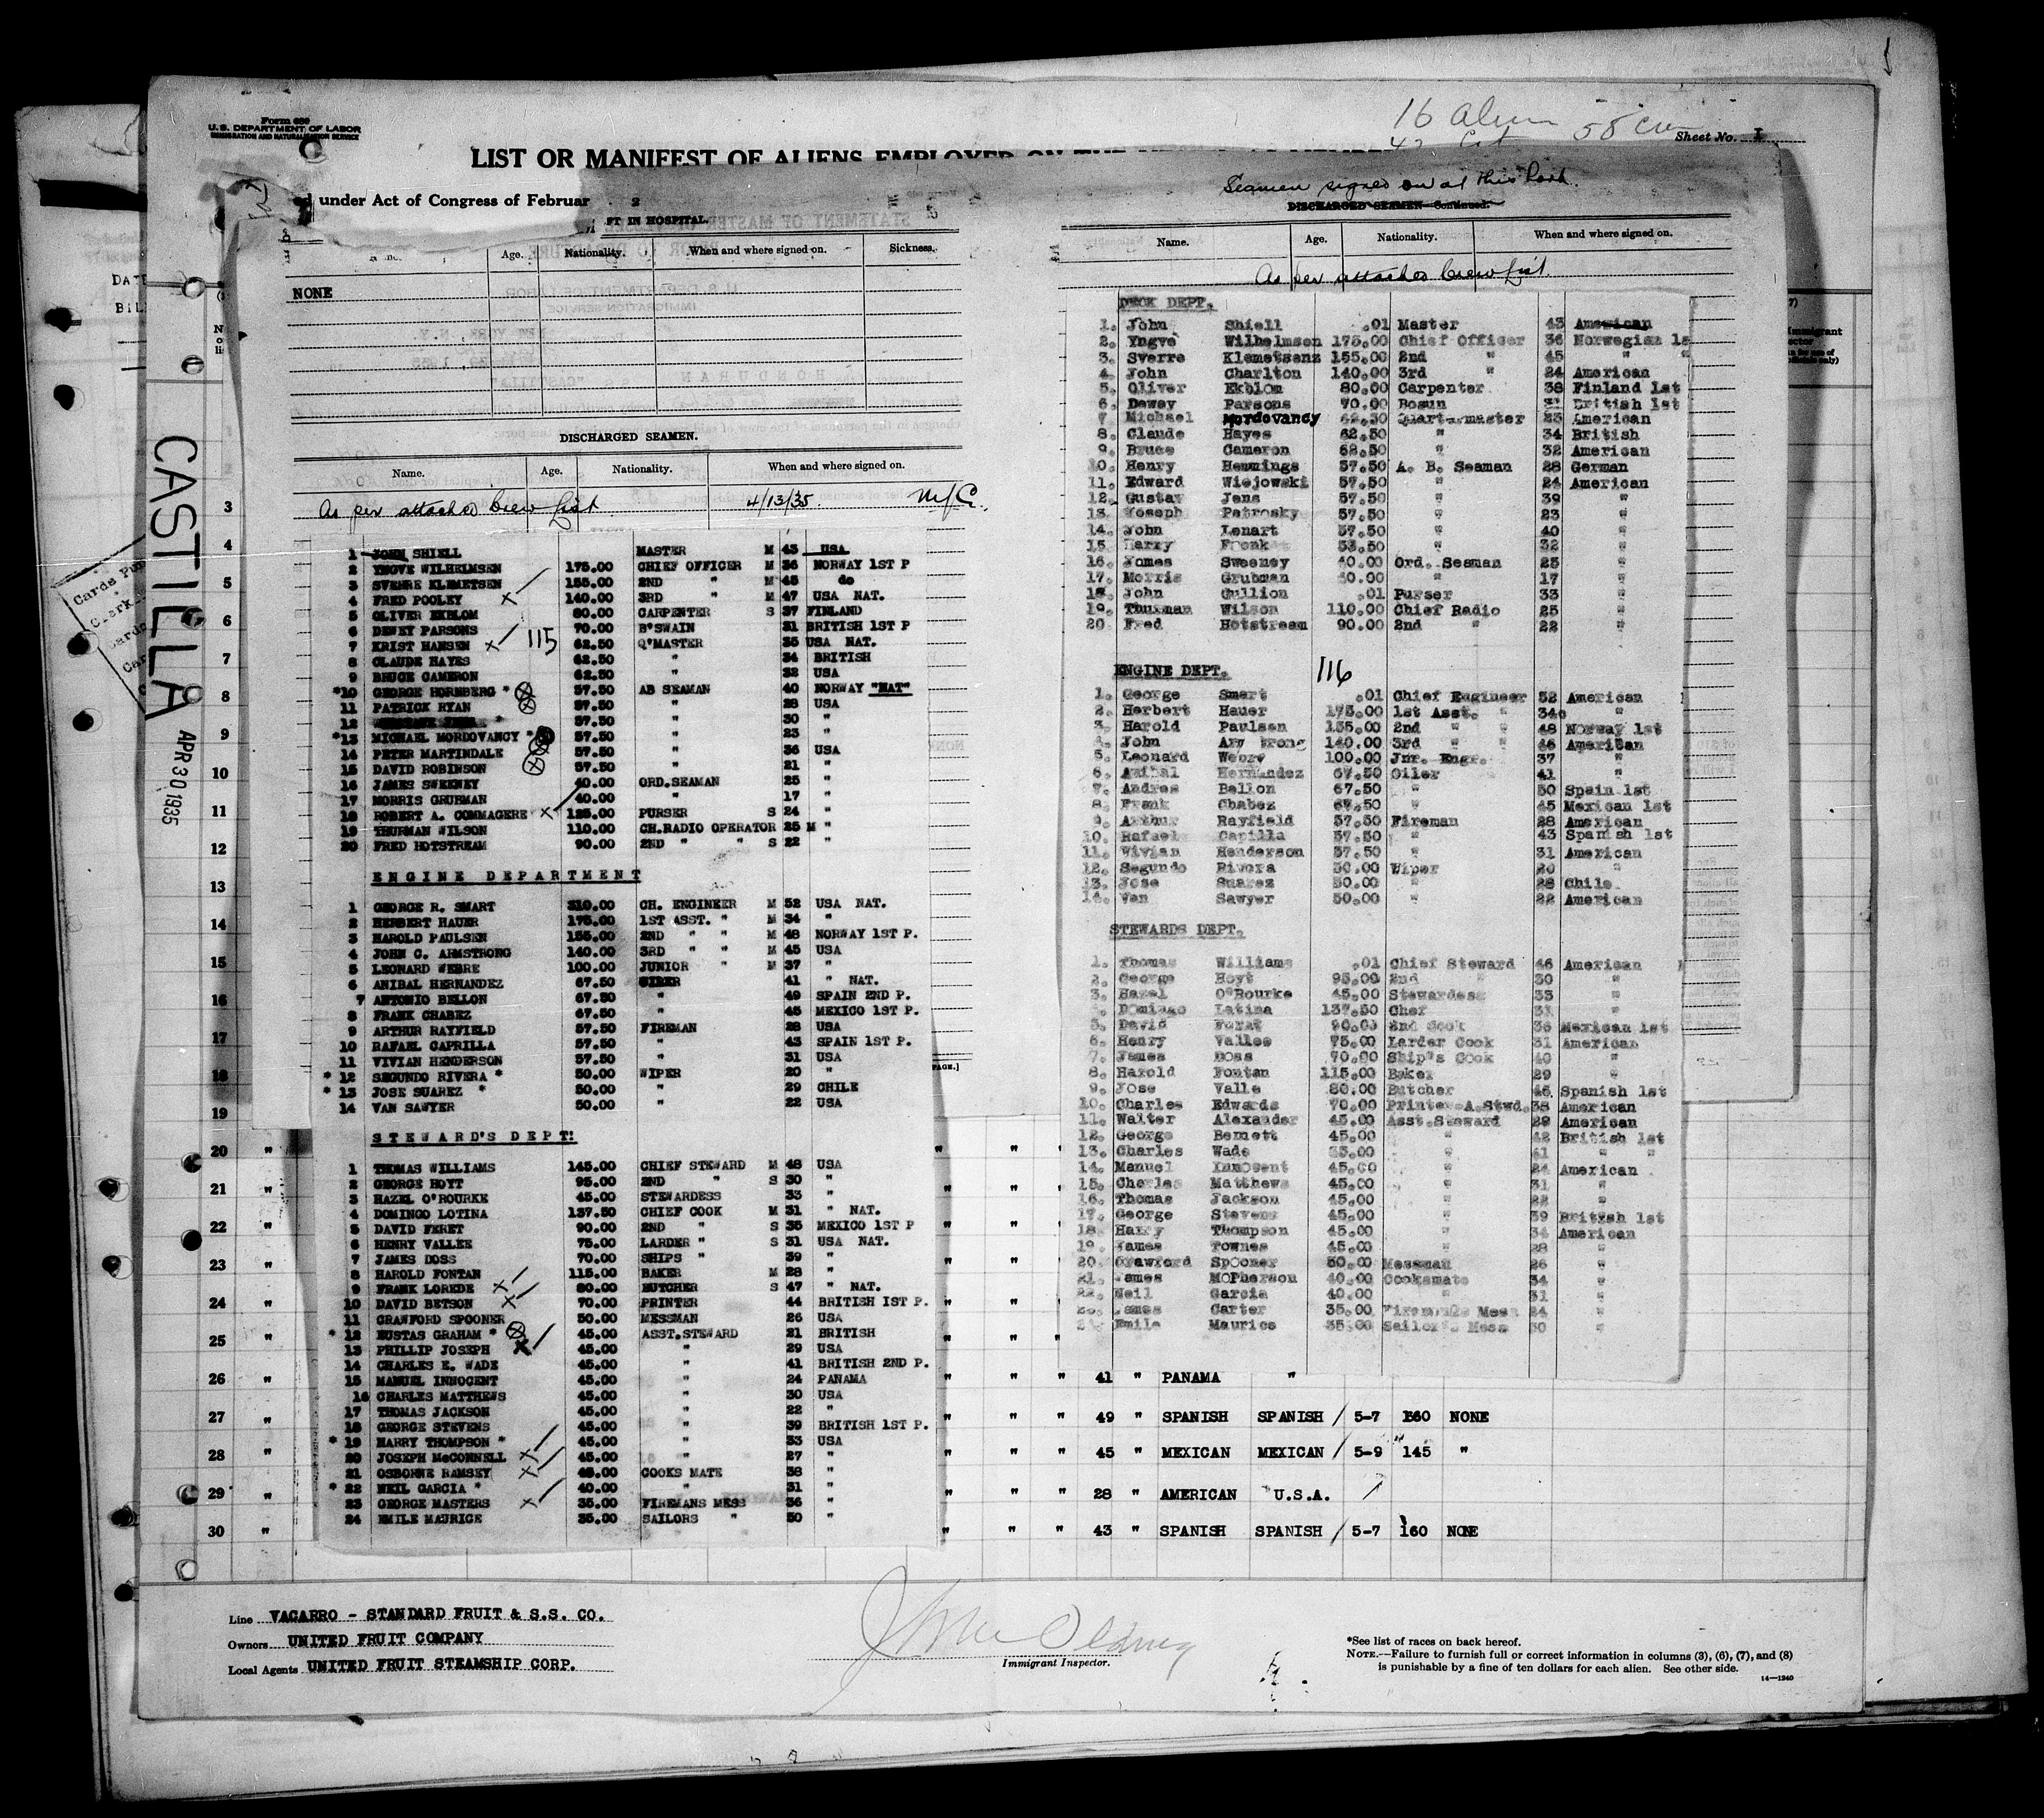 Form 689
U.S. DEPARTMENT OF LABOR
IMMIGRATION AND NATURALIZATION SERVICE
16 Alien 58 Crew
Sheet No. I
LIST OR MANIFEST OF ALIENS EMPLOYED ON THE
under Act of Congress of Februar
FT IN HOSPITAL.
Age. Nationality. When and where signed on. Sickness.
NONE
DISCHARGED SEAMEN.
Name. Age. Nationality. When and where signed on.
As per attached Crew List 4/13/35. N/C.
1 JOHN SHIELL MASTER M 43 USA
2 YNGVE WILHELMSEN 175.00 CHIEF OFFICER M 36 NORWAY 1ST P
3 SVERRE KLEMETSEN 155.00 2ND " M 45 do
4 FRED POOLEY X 140.00 3RD " M 47 USA NAT.
5 OLIVER EKBLOM 80.00 CARPENTER S 37 FINLAND
6 DEWEY PARSONS 70.00 B'SWAIN 31 BRITISH 1ST P
7 KRIST HANSEN X 115 62.50 Q'MASTER 35 USA NAT.
8 CLAUDE HAYES 62.50 " 34 BRITISH
9 BRUCE CAMERON 62.50 " 32 USA
*10 GEORGE HORNBERG * 57.50 AB SEAMAN 40 NORWAY "NAT"
11 PATRICK RYAN 57.50 " 28 USA
12 57.50 " 30 "
*13 MICHAEL MORDOVANCY * 57.50 " 23 "
14 PETER MARTINDALE 57.50 " 36 USA
15 DAVID ROBINSON 57.50 " 21 "
16 JAMES SWEENEY 40.00 ORD.SEAMAN 25 "
17 MORRIS GRUBMAN 40.00 " 17 "
18 ROBERT A. COMMAGERE X 125.00 PURSER S 24 "
19 THURMAN WILSON 110.00 CH.RADIO OPERATOR 25 M "
20 FRED HOTSTREAM 90.00 2ND " " S 22 "
ENGINE DEPARTMENT
1 GEORGE R. SMART 310.00 CH. ENGINEER M 52 USA NAT.
2 HERBERT HAUER 175.00 1ST ASST. " M 34 "
3 HAROLD PAULSEN 155.00 2ND " " M 48 NORWAY 1ST P.
4 JOHN C. ARMSTRONG 140.00 3RD " " M 45 USA
5 LEONARD WEBRE 100.00 JUNIOR " M 37 "
6 ANIBAL HERNANDEZ 67.50 OILER 41 " NAT.
7 ANTONIO BELLON 67.50 " 49 SPAIN 2ND P.
8 FRANK CHABEZ 67.50 " 45 MEXICO 1ST P.
9 ARTHUR RAYFIELD 57.50 FIREMAN 28 USA
10 RAFAEL CAPRILLA 57.50 " 43 SPAIN 1ST P.
11 VIVIAN HENDERSON 57.50 " 31 USA
* 12 SEGUNDO RIVERA * 50.00 WIPER 20 "
* 13 JOSE SUAREZ * 50.00 " 29 CHILE
14 VAN SAWYER 50.00 " 22 USA
STEWARD'S DEPT:
1 THOMAS WILLIAMS 145.00 CHIEF STEWARD M 48 USA
2 GEORGE HOYT 95.00 2ND " S 30 "
3 HAZEL O'ROURKE 45.00 STEWARDESS 33 "
4 DOMINGO LOTINA 137.50 CHIEF COOK M 31 " NAT.
5 DAVID FERET 90.00 2ND " S 35 MEXICO 1ST P
6 HENRY VALLEE 75.00 LARDER " S 31 USA NAT.
7 JAMES DOSS 70.00 SHIPS " 39 "
8 HAROLD FONTAN 115.00 BAKER M 28 "
9 FRANK LOREDE X 80.00 BUTCHER S 47 " NAT.
10 DAVID BETSON X 70.00 PRINTER 44 BRITISH 1ST P.
11 CRAWFORD SPOONER 50.00 MESSMAN 26 USA
* 12 EUSTAS GRAHAM * 45.00 ASST.STEWARD 21 BRITISH
13 PHILLIP JOSEPH X 45.00 " 29 USA
14 CHARLES E. WADE 45.00 " 41 BRITISH 2ND P.
15 MANUEL INNOCENT 45.00 " 24 PANAMA
16 CHARLES MATTHEWS 45.00 " 30 USA
17 THOMAS JACKSON 45.00 " 22 "
18 GEORGE STEVENS 45.00 " 39 BRITISH 1ST P.
* 19 HARRY THOMPSON * 45.00 " 33 USA
20 JOSEPH McCONNELL X 45.00 " 27 "
21 OSBORNE RAMSEY X 45.00 COOKS MATE 38 "
* 22 NEIL GARCIA * 40.00 " 31 "
23 GEORGE MASTERS X 35.00 FIREMANS MESS 36 "
24 EMILE MAURICE 35.00 SAILORS " 50 "
Seamen signed on at this Port.
DISCHARGED SEAMEN—Continued.
Name. Age. Nationality. When and where signed on.
As per attached Crew List.
DECK DEPT.
1. John Shiell .01 Master 43 American
2. Yngve Wilhelmsen 175.00 Chief Officer 36 Norwegian 1s
3. Sverre Klemetsenz 155.00 2nd " 45 " "
4. John Charlton 140.00 3rd " 24 American
5. Oliver Ekblom 80.00 Carpenter 38 Finland 1st
6. Dewey Parsons 70.00 Bosun 31 British 1st
7 Michael Mordovancy 62.50 Quartermaster 23 American
8. Claude Hayes 62.50 " 34 British
9. Bruce Cameron 62.50 " 32 American
10. Henry Hemmings 57.50 A. B. Seaman 28 German
11. Edward Wiejowski 57.50 " 24 American
12. Gustav Jens 57.50 " 39 "
13. Joseph Patrosky 57.50 " 23 "
14. John Lenart 57.50 " 40 "
15. Harry Fronk 53.50 " 32 "
16. James Sweeney 40.00 Ord. Seaman 25 "
17. Morris Grubman 40.00 " 17 "
18. John Gullion .01 Purser 33 "
19. Thurman Wilson 110.00 Chief Radio 25 "
20. Fred Hotstream 90.00 2nd " 22 "
ENGINE DEPT. 116
1. George Smart .01 Chief Engineer 52 American
2. Herbert Hauer 175.00 1st Asst. " 34 "
3. Harold Paulsen 155.00 2nd " " 48 Norway 1st
4. John Arm trong 140.00 3rd " " 46 American
5. Leonard Webre 100.00 Jnr. Engr. 37 "
6. Anibal Hernandez 67.50 Oiler 41 "
7. Andres Bellon 67.50 " 50 Spain 1st
8. Frank Chabez 67.50 " 45 Mexican 1st
9. Arthur Rayfield 57.50 Fireman 28 American
10. Rafael Capilla 57.50 " 43 Spanish 1st
11. Vivian Henderson 57.50 " 31 American
12. Segundo Rivera 50.00 Wiper 20 "
13. Jose Suarez 50.00 " 28 Chile
14. Van Sawyer 50.00 " 22 American
STEWARDS DEPT.
1. Thomas Williams .01 Chief Steward 46 American
2. George Hoyt 95.00 2nd " 30 "
3. Hazel O'Rourke 45.00 Stewardess 33 "
4. Domingo Latina 137.50 Chef 31 "
5. David 90.00 2nd Cook 36 Mexican 1st
6. Henry Vallee 75.00 Larder Cook 31 American
7. James Doss 70.00 Ship's Cook 40 "
8. Harold Fontan 115.00 Baker 29 "
9. Jose Valle 80.00 Butcher 46 Spanish 1st
10. Charles Edwards 70.00 Printer A.Stwd. 38 American
11. Walter Alexander 45.00 Asst.Steward 29 American
12. George Bennett 45.00 " 42 British 1st
13. Charles Wade 35.00 " 41 " "
14. Manuel Innocent 45.00 " 24 American
15. Charles Matthews 45.00 " 31 "
16. Thomas Jackson 45.00 " 22 "
17. George Stevens 45.00 " 39 British 1st
18. Harry Thompson 45.00 " 34 American
19. James Townes 45.00 " 28 "
20. Crawford Spooner 50.00 Messman 26 "
21. James McPherson 40.00 Cooksmate 34 "
22. Neil Garcia 40.00 " 31 "
23. James Carter 35.00 Firemon's Mess 24 "
24. Emile Maurice 35.00 Sailor's Mess 30 "
CASTILLA
APR 30 1935
3
4
5
6
7
8
9
10
11
12
13
14
15
16
17
18
19
20 "
21 "
22 "
23 "
24 "
25 "
26 " " " 41 " PANAMA "
27 " " " 49 " SPANISH SPANISH / 5-7 160 NONE
28 " " " 45 " MEXICAN MEXICAN / 5-9 145 "
29 " " " 28 " AMERICAN U.S.A. /
30 " " " 43 " SPANISH SPANISH / 5-7 160 NONE
Line VACARRO - STANDARD FRUIT & S.S. CO.
Owners UNITED FRUIT COMPANY
Local Agents UNITED FRUIT STEAMSHIP CORP.
Immigrant Inspector.
*See list of races on back hereof.
NOTE.—Failure to furnish full or correct information in columns (3), (6), (7), and (8)
is punishable by a fine of ten dollars for each alien. See other side.
14—1240